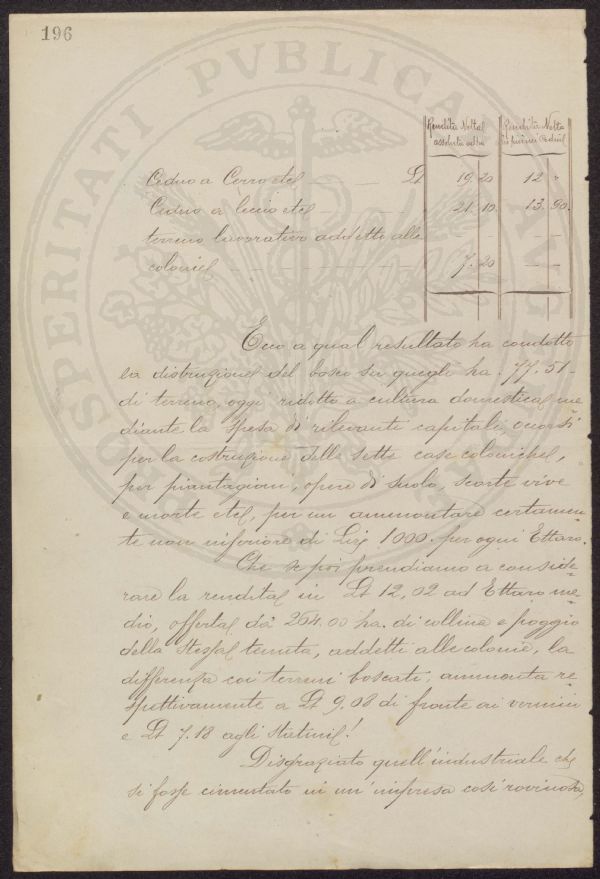 196
PROSPERITATI PVBLICAE AVGENDAE
Rendita Netta Rendita Netta
Ceduo a Cerro etc. Lt 19. 20 12 "
Ceduo a leccio etc. 21. 10. 13. 90.
terreno lavorativo addetti alle
colonie 7. 20
Ecco a qual resultato ha condotto
la distruzione del bosco su quegli ha. 77.51-
di terreno, oggi ridotto a cultura domestica me
diante la spesa di rilevanti capitali, occorsi
per la costruzione delle sette case coloniche,
per piantagioni, opere di suolo, scorte vive
e morte etc, per un ammontare certamen
te non inferiore di Lire 1000. per ogni Ettaro.
Che se poi prendiamo a conside-
rare la rendita in Lt 12,02 ad Ettaro me-
dio, offerta da 264.00 ha. di collina e poggio
della stessa tenuta, addetti alle colonie, la
differenza coi terreni boscati, ammonta re
spettivamente a Lt 9.08 di fronte ai
e Lt 7.18 agli
Disgraziato quell'industriale che
si fosse cimentato in un'impresa così rovinosa,